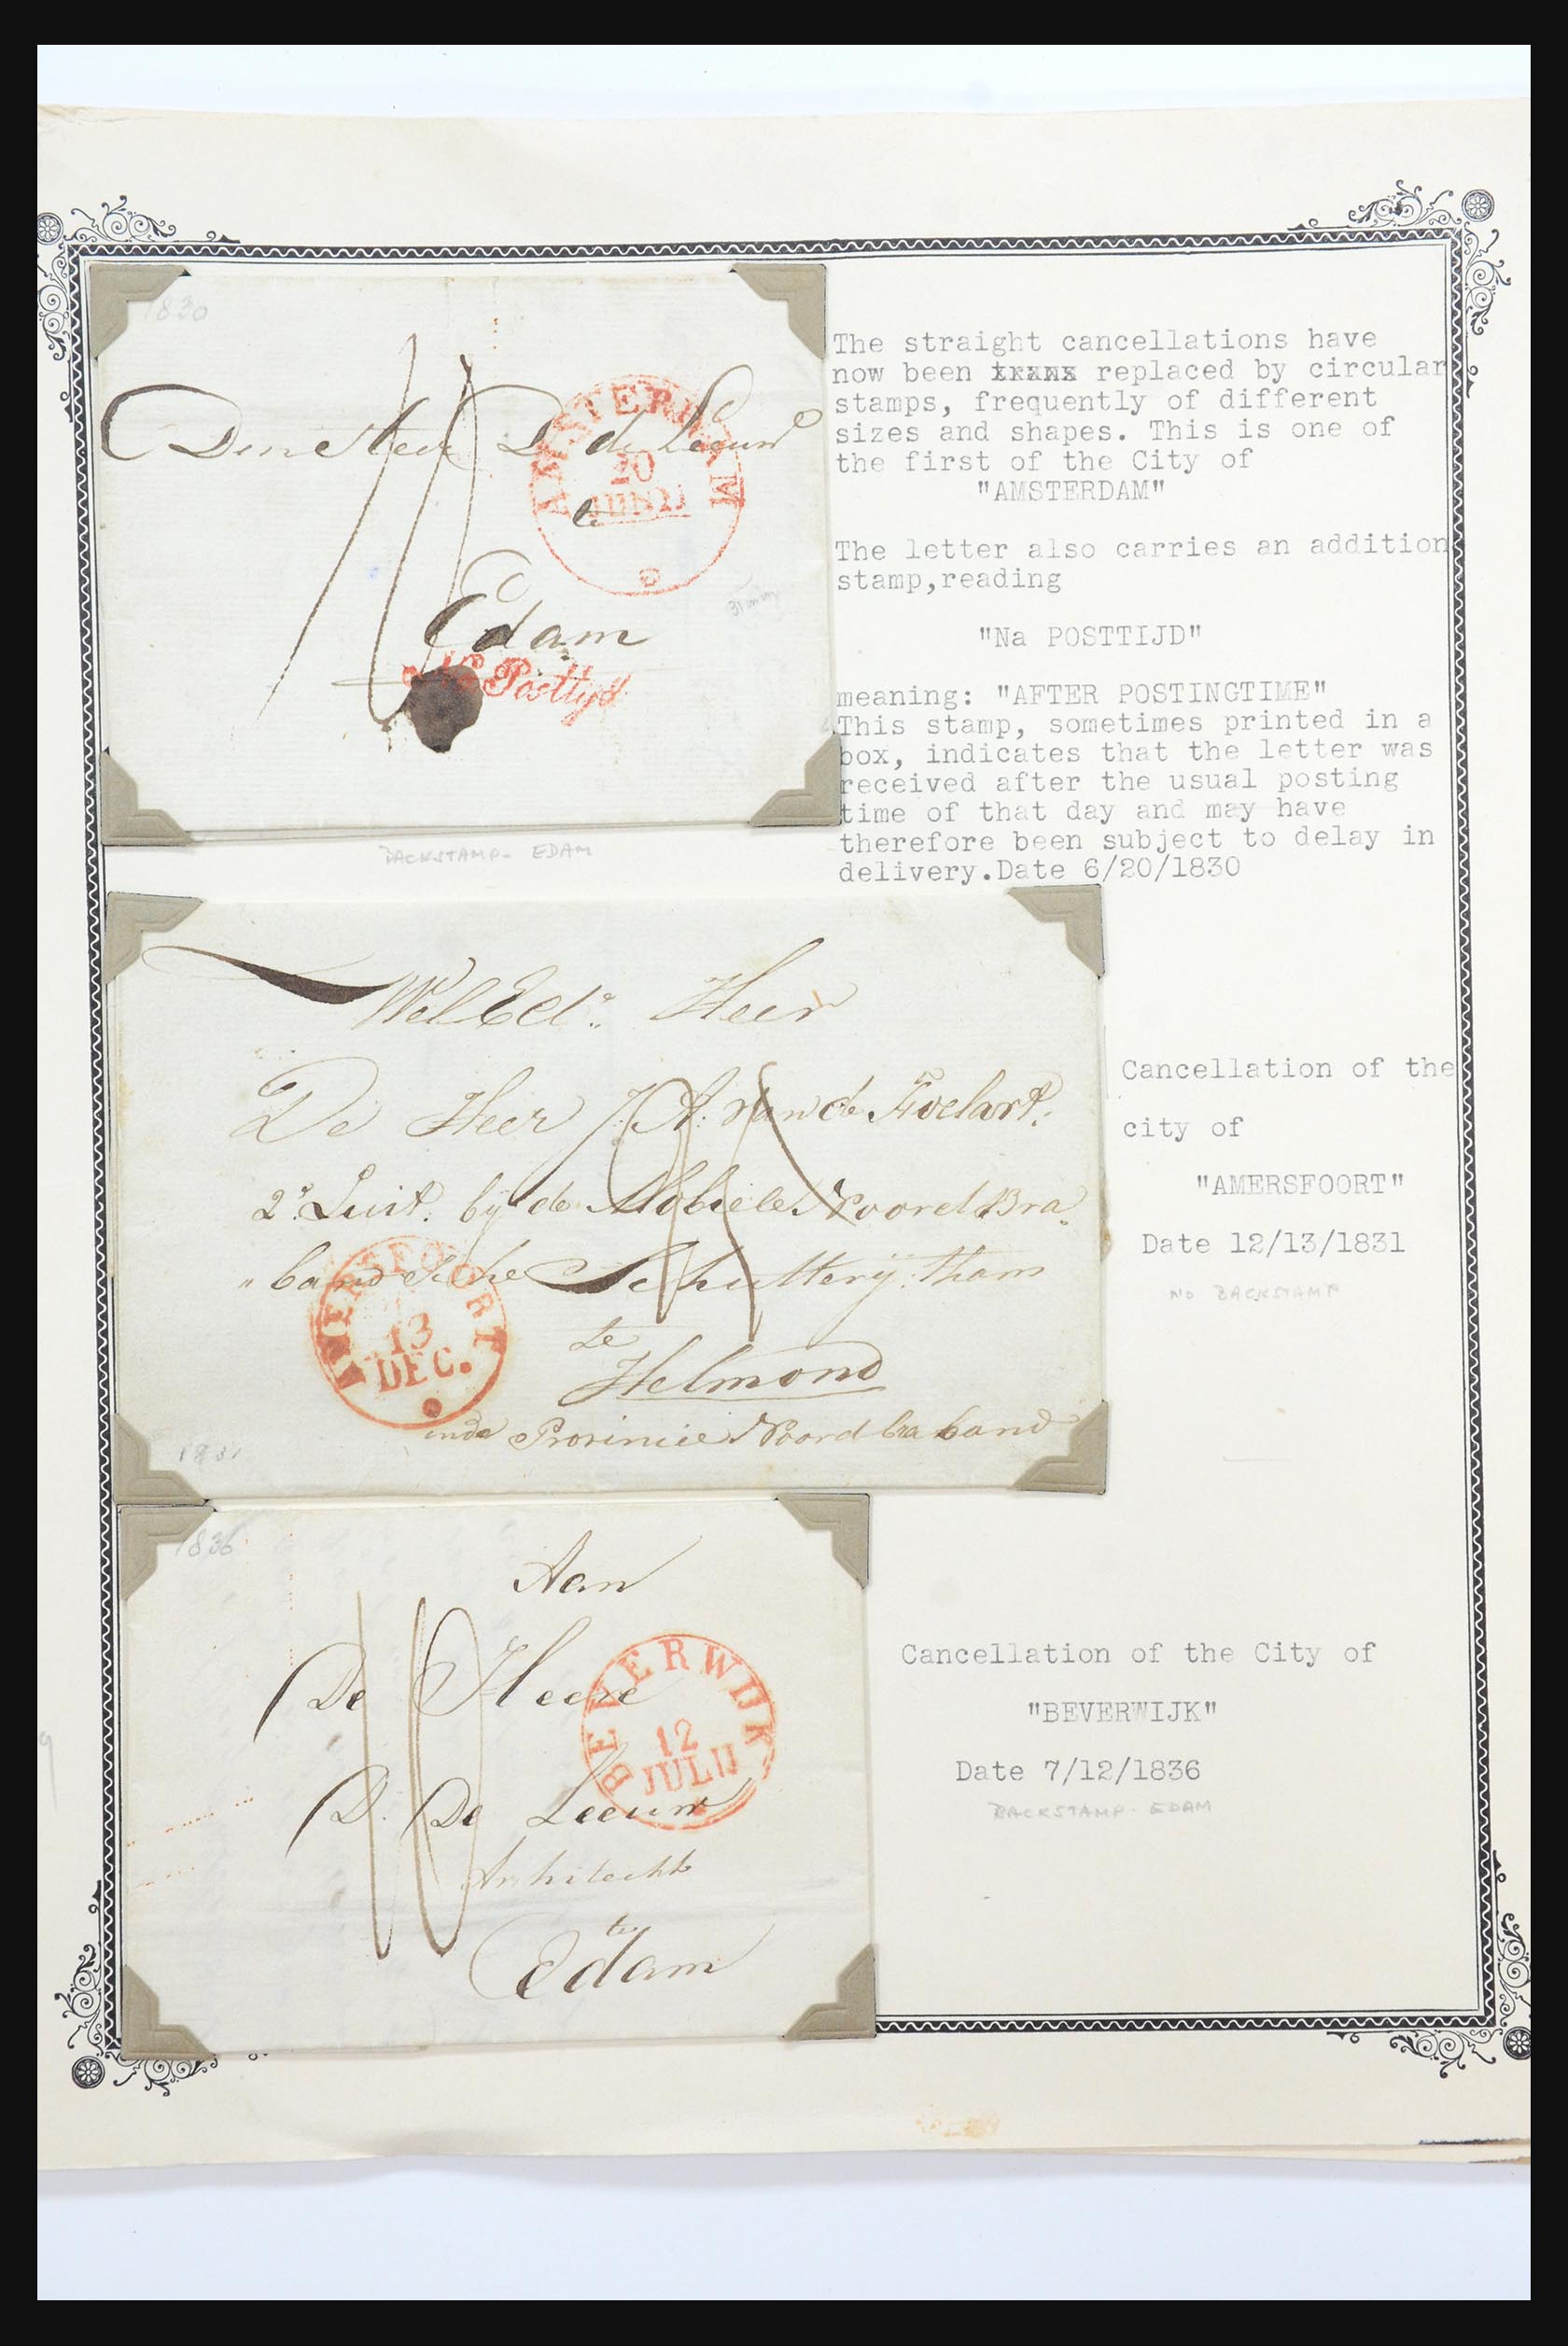 1830
Den Heer D. de Leeuw
AMSTERDAM
20
JUNIJ
te
31 mm
Edam
Na Posttyd
BACKSTAMP - EDAM
The straight cancellations have
now been replaced by circular
stamps, frequently of different
sizes and shapes. This is one of
the first of the City of
"AMSTERDAM"
The letter also carries an addition
stamp,reading
"Na POSTTIJD"
meaning: "AFTER POSTINGTIME"
This stamp, sometimes printed in a
box, indicates that the letter was
received after the usual posting
time of that day and may have
therefore been subject to delay in
delivery.Date 6/20/1830
WelEdl. Heer
De Heer J. A. van de
2e Luit. by de Mobiele Noord Bra
"bandsche Schuttery. thans
te
Helmond
inde Provincie Noordbraband
AMERSFOORT
13
DEC.
1831
Cancellation of the
city of
"AMERSFOORT"
Date 12/13/1831
NO BACKSTAMP
1836
Aan
De Heere
D. De Leeuw
Architeckt
te
Edam
BEVERWIJK
12
JULIJ
Cancellation of the City of
"BEVERWIJK"
Date 7/12/1836
BACKSTAMP - EDAM